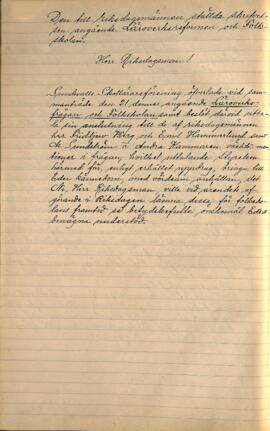 Den till Riksdagsmännen ställda skrivel-
sen angående Läroverksreformen och Folk-
skolan.
Herr Riksdagsman!
Sundsvalls Skollärareförening överlade vid sam-
manträde den 21 dennes angående Läroverks-
frågan och Folkskolan samt beslöt därvid utta-
la sin anslutning till de af riksdagsmännen
hrr Fridtjuv Berg och Emil Hammarlund samt
A. Lundström i Andra Kammaren väckta mo-
tioner i frågan, hvilket uttalande Styrelsen
härmed får, enligt erhållet uppdrag, bringa till
Eder kännedom, med vördsam anhållan, det
Ni, Herr Riksdagsman, ville vid ärendets af-
görande i Riksdagen lämna dessa, för folksko-
lans framtid så betydelsefulla önskemål Edert
benägna understöd.